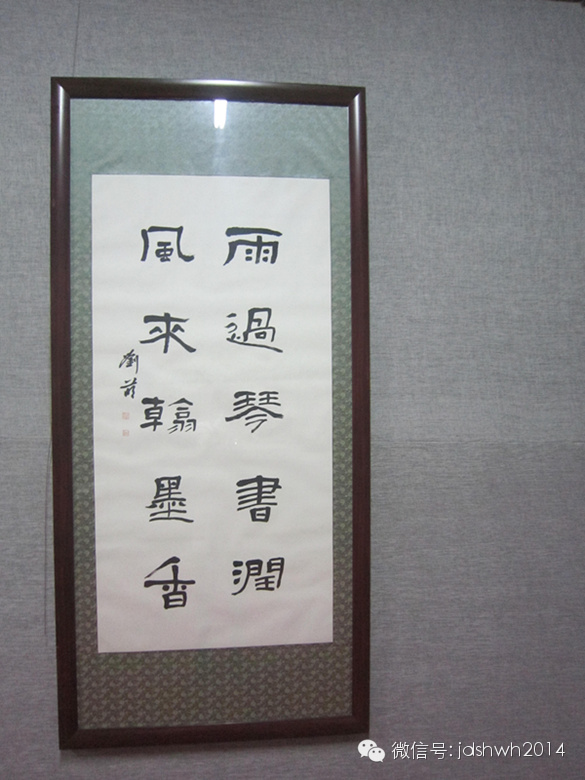 雨過琴書潤
風來翰墨香
微信号: jdshwh2014